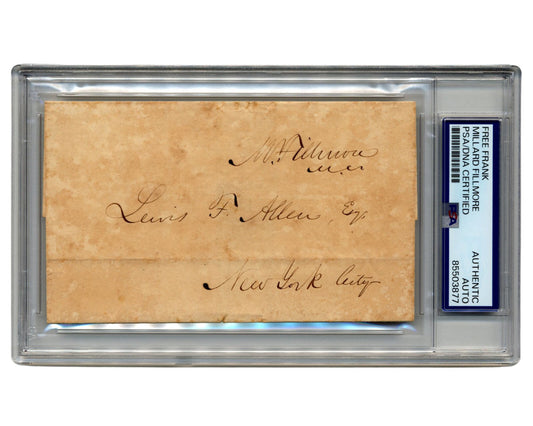 M. Fillmore
M.C.
Lewis F. Allen, Esq.
New York City
FREE FRANK
MILLARD FILLMORE
PSA/DNA CERTIFIED
PSA
AUTHENTIC
AUTO
85503877